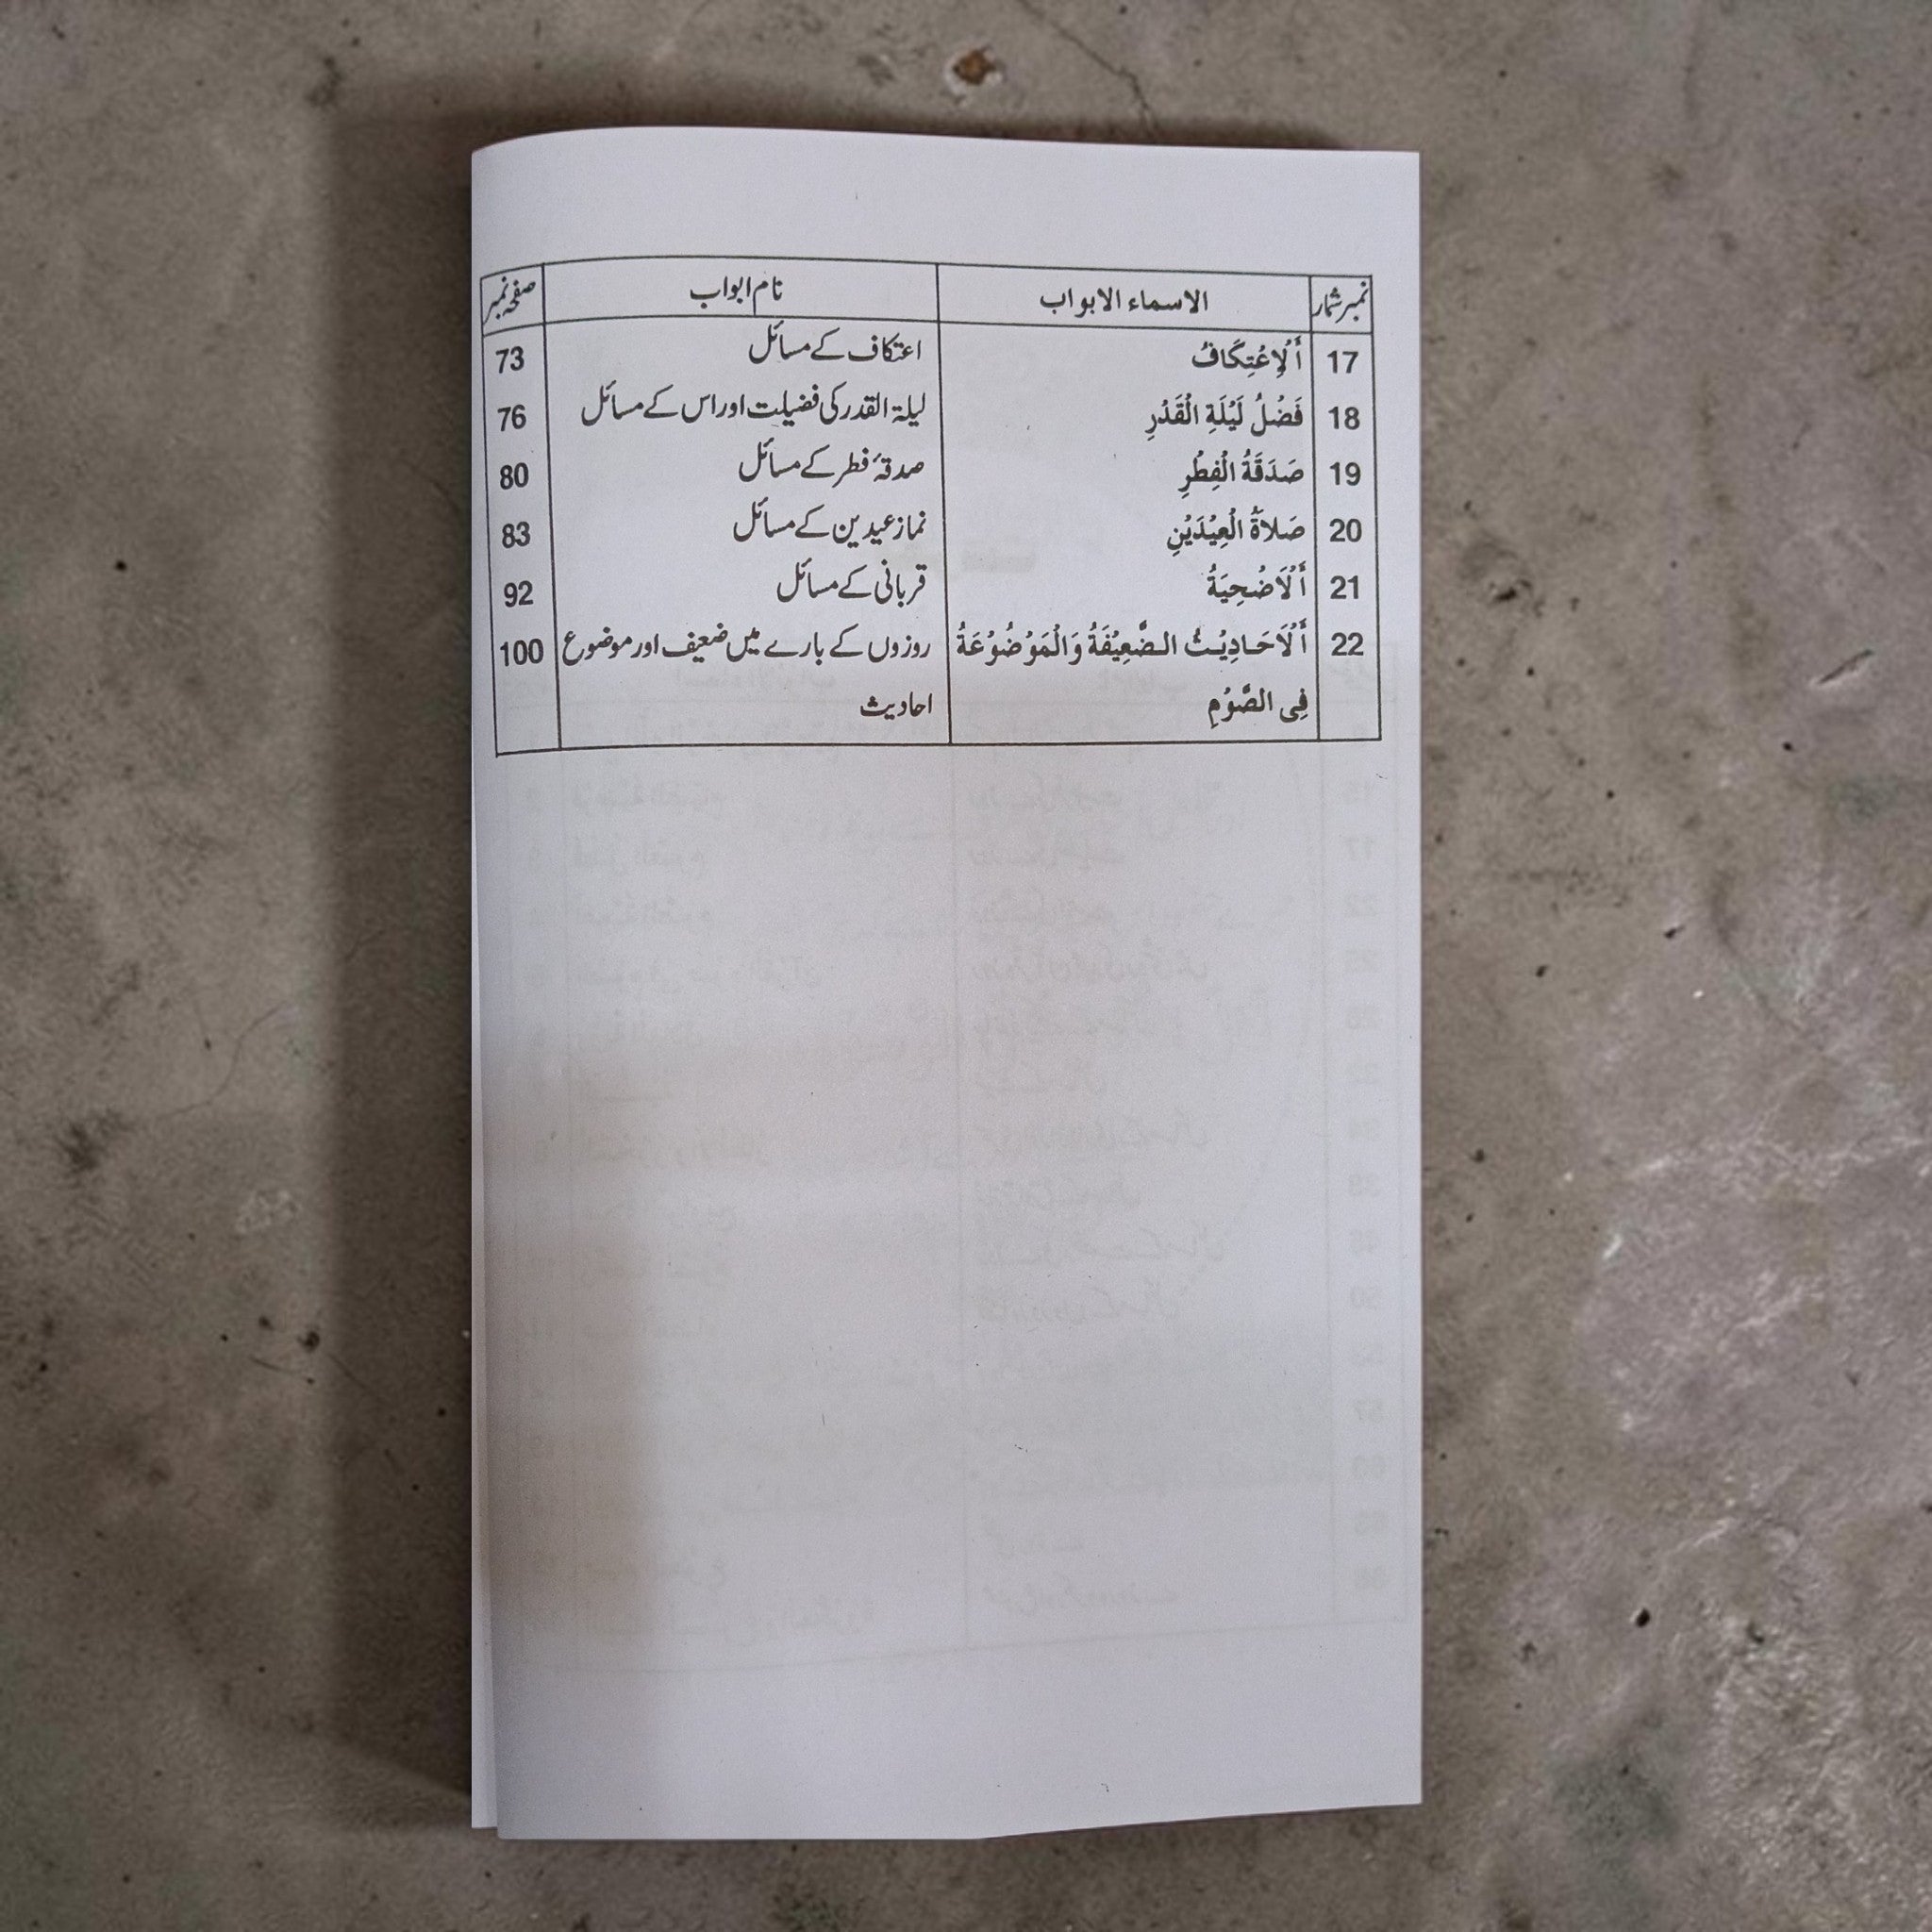 نمبر شمار الاسماء الابواب نام ابواب صفحہ نمبر
17 أَلْاِعْتِكَافُ اعتکاف کے مسائل 73
18 فَضْلُ لَيْلَةِ الْقَدْرِ لیلۃ القدر کی فضیلت اور اس کے مسائل 76
19 صَدَقَةُ الْفِطْرِ صدقۂ فطر کے مسائل 80
20 صَلاَةُ الْعِيْدَيْنِ نماز عیدین کے مسائل 83
21 أَلْاَضْحِيَةُ قربانی کے مسائل 92
22 أَلْاَحَادِيْثُ الضَّعِيْفَةُ وَالْمَوْضُوْعَةُ روزوں کے بارے میں ضعیف اور موضوع 100
فِى الصَّوْمِ احادیث